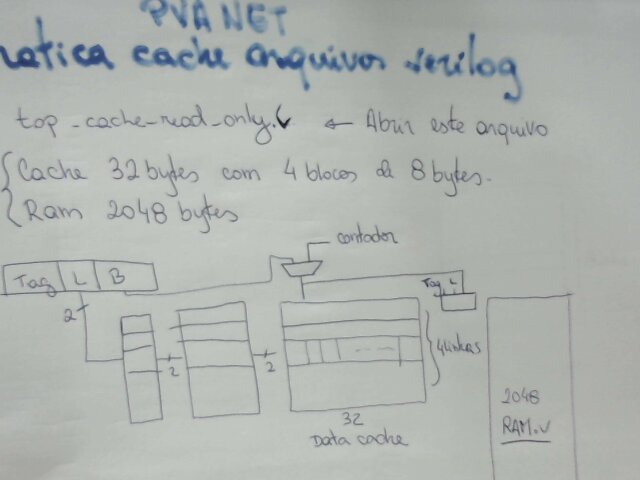 PVANET
ratica cache arquivos verilog
top-cache-read-only.v ← Abrir este arquivo
Cache 32 bytes com 4 blocos de 8 bytes.
Ram 2048 bytes
contador
Tag L B
Tag L
2
2
2
4 linhas
32
Data cache
2048
RAM.v